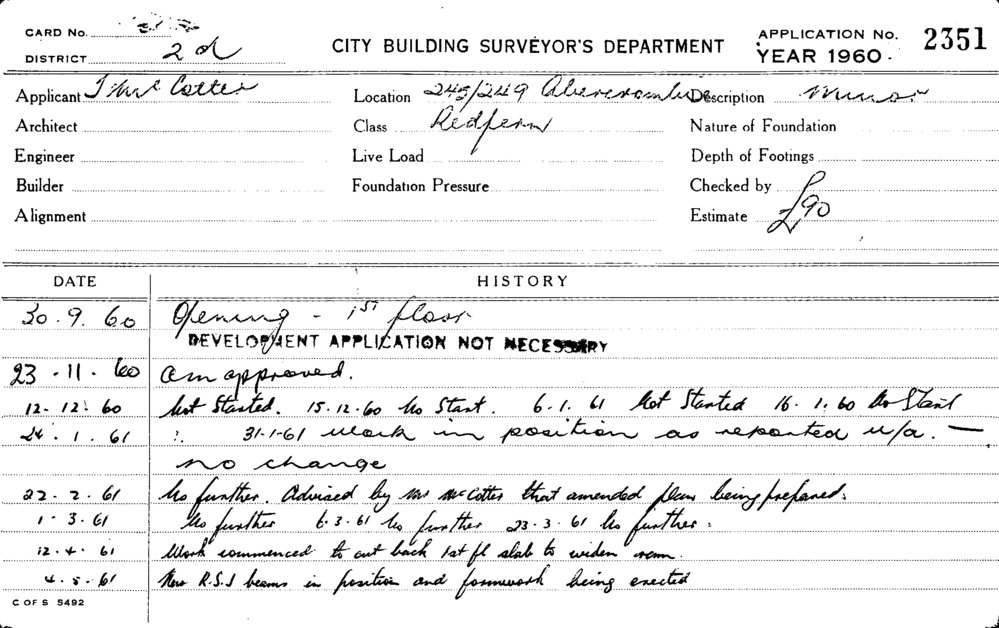 CARD No.
DISTRICT 2d
CITY BUILDING SURVEYOR'S DEPARTMENT
APPLICATION No. 2351
YEAR 1960.
Applicant J McCotter
Location 245/249 Abercrombie
Description Minor
Architect
Class Redfern
Nature of Foundation
Engineer
Live Load
Depth of Footings
Builder
Foundation Pressure
Checked by
Alignment
Estimate £90
DATE HISTORY
30.9.60 Opening - 1ST floor
DEVELOPMENT APPLICATION NOT NECESSARY
23.11.60 approved.
12.12.60 Not Started. 15.12.60 No Start. 6.1.61 Not Started 16.1.60 No Start
24.1.61 31-1-61 Work in position as reported u/a. —
no change
22.2.61 No further. Advised by Mr McCotter that amended plan being prepared.
1.3.61 No further 6.3.61 No further 23.3.61 No further.
12.4.61 Work commenced to cut back 1st fl slab to widen room.
4.5.61 New R.S.J beams in position and formwork being erected
C OF S 5492